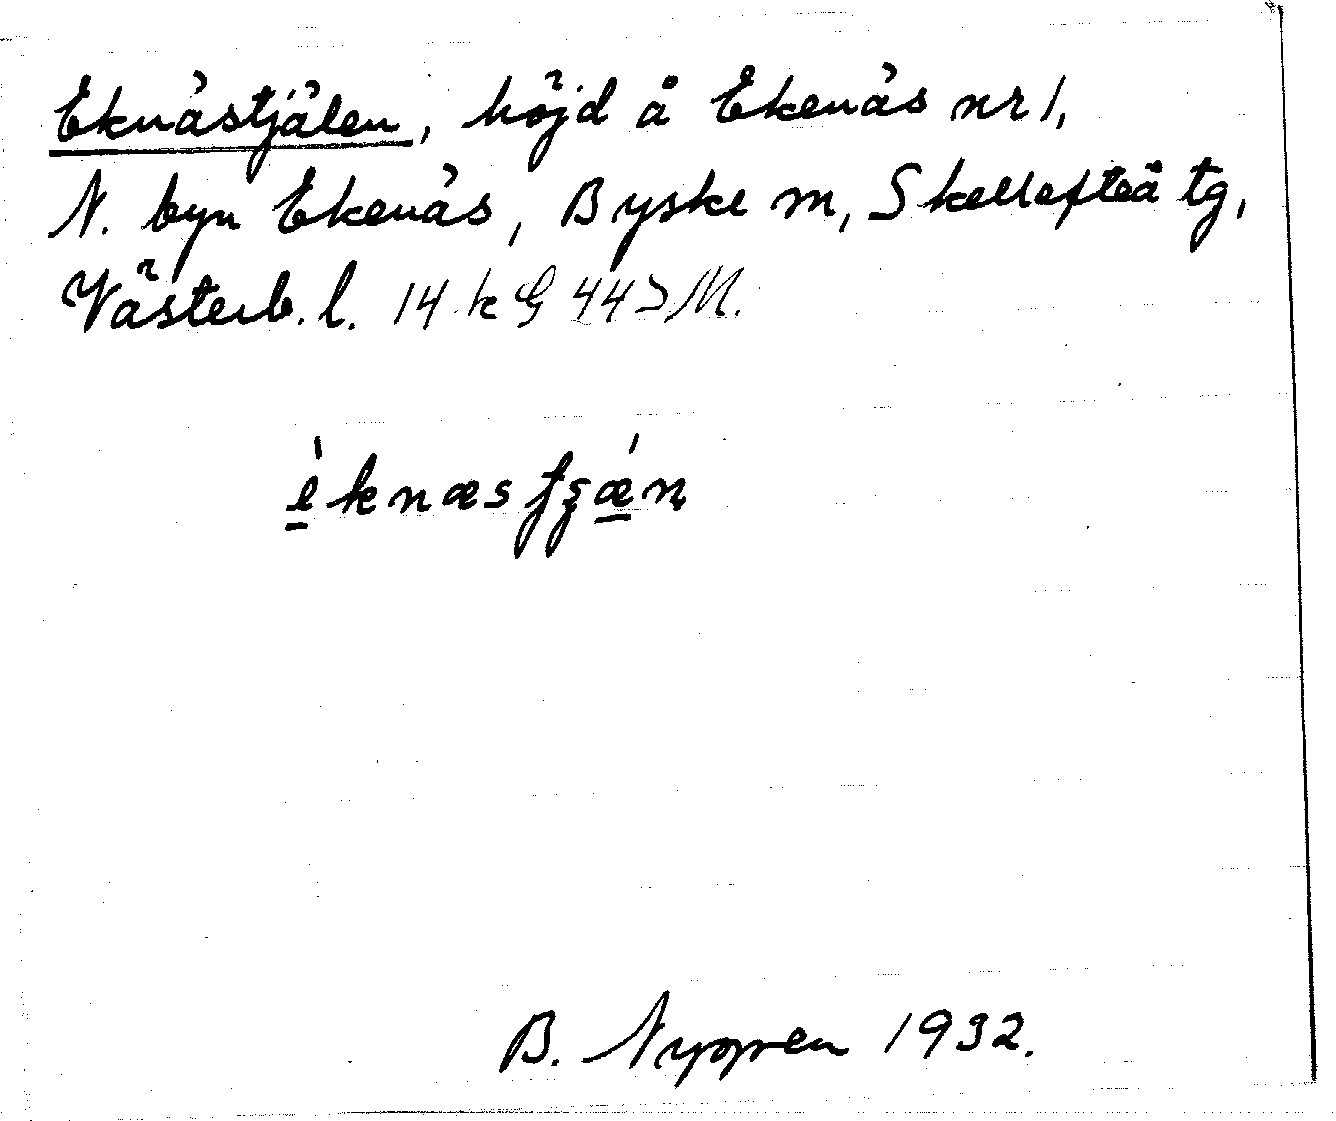 Eknästjälen, höjd å Ekenäs nr 1,
N. byn Ekenäs, Byske sn, Skellefteå tg,
Västerb. l. 14 k G 44
B. Nygren 1932.